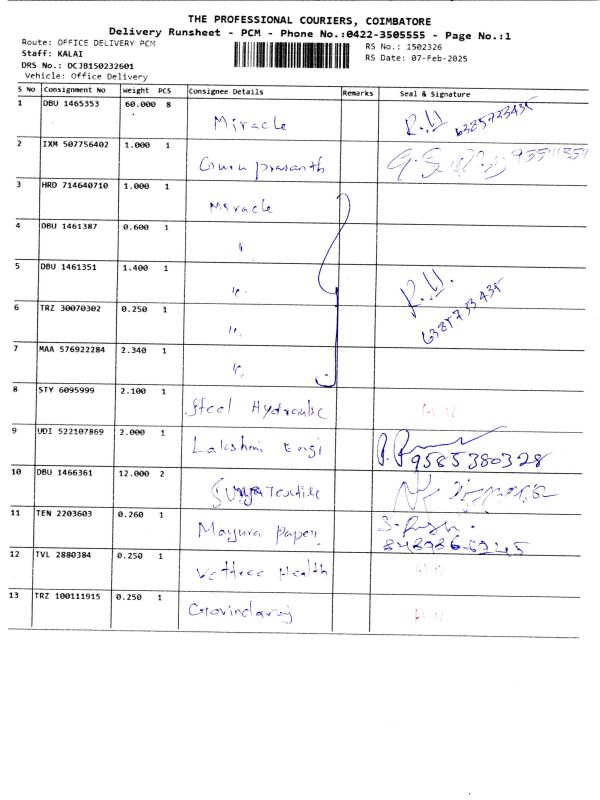 THE PROFESSIONAL COURIERS, COIMBATORE
Delivery Runsheet - PCM - Phone No.:0422-3505555 - Page No.:1
Route: OFFICE DELIVERY PCM
Staff: KALAI
DRS No.: DCJB150232601
Vehicle: Office Delivery
RS No.: 1502326
RS Date: 07-Feb-2025
S No Consignment No Weight PCS Consignee Details Remarks Seal & Signature
1 DBU 1465353 60.000 8 Miracle
2 IXM 507756402 1.000 1 prasanth
3 HRD 714640710 1.000 1 Miracle
4 DBU 1461387 0.600 1 "
5 DBU 1461351 1.400 1 "
6 TRZ 30070302 0.250 1 "
7 MAA 576922284 2.340 1 "
8 STY 6095999 2.100 1 Steel Hydraulic
9 UDI 522107869 2.000 1 Lakshmi Engi 9585380328
10 DBU 1466361 12.000 2 Surya Textile
11 TEN 2203603 0.260 1 Mayura Paper
12 TVL 2880384 0.250 1 Vettree Health
13 TRZ 100111915 0.250 1 Govindaraj